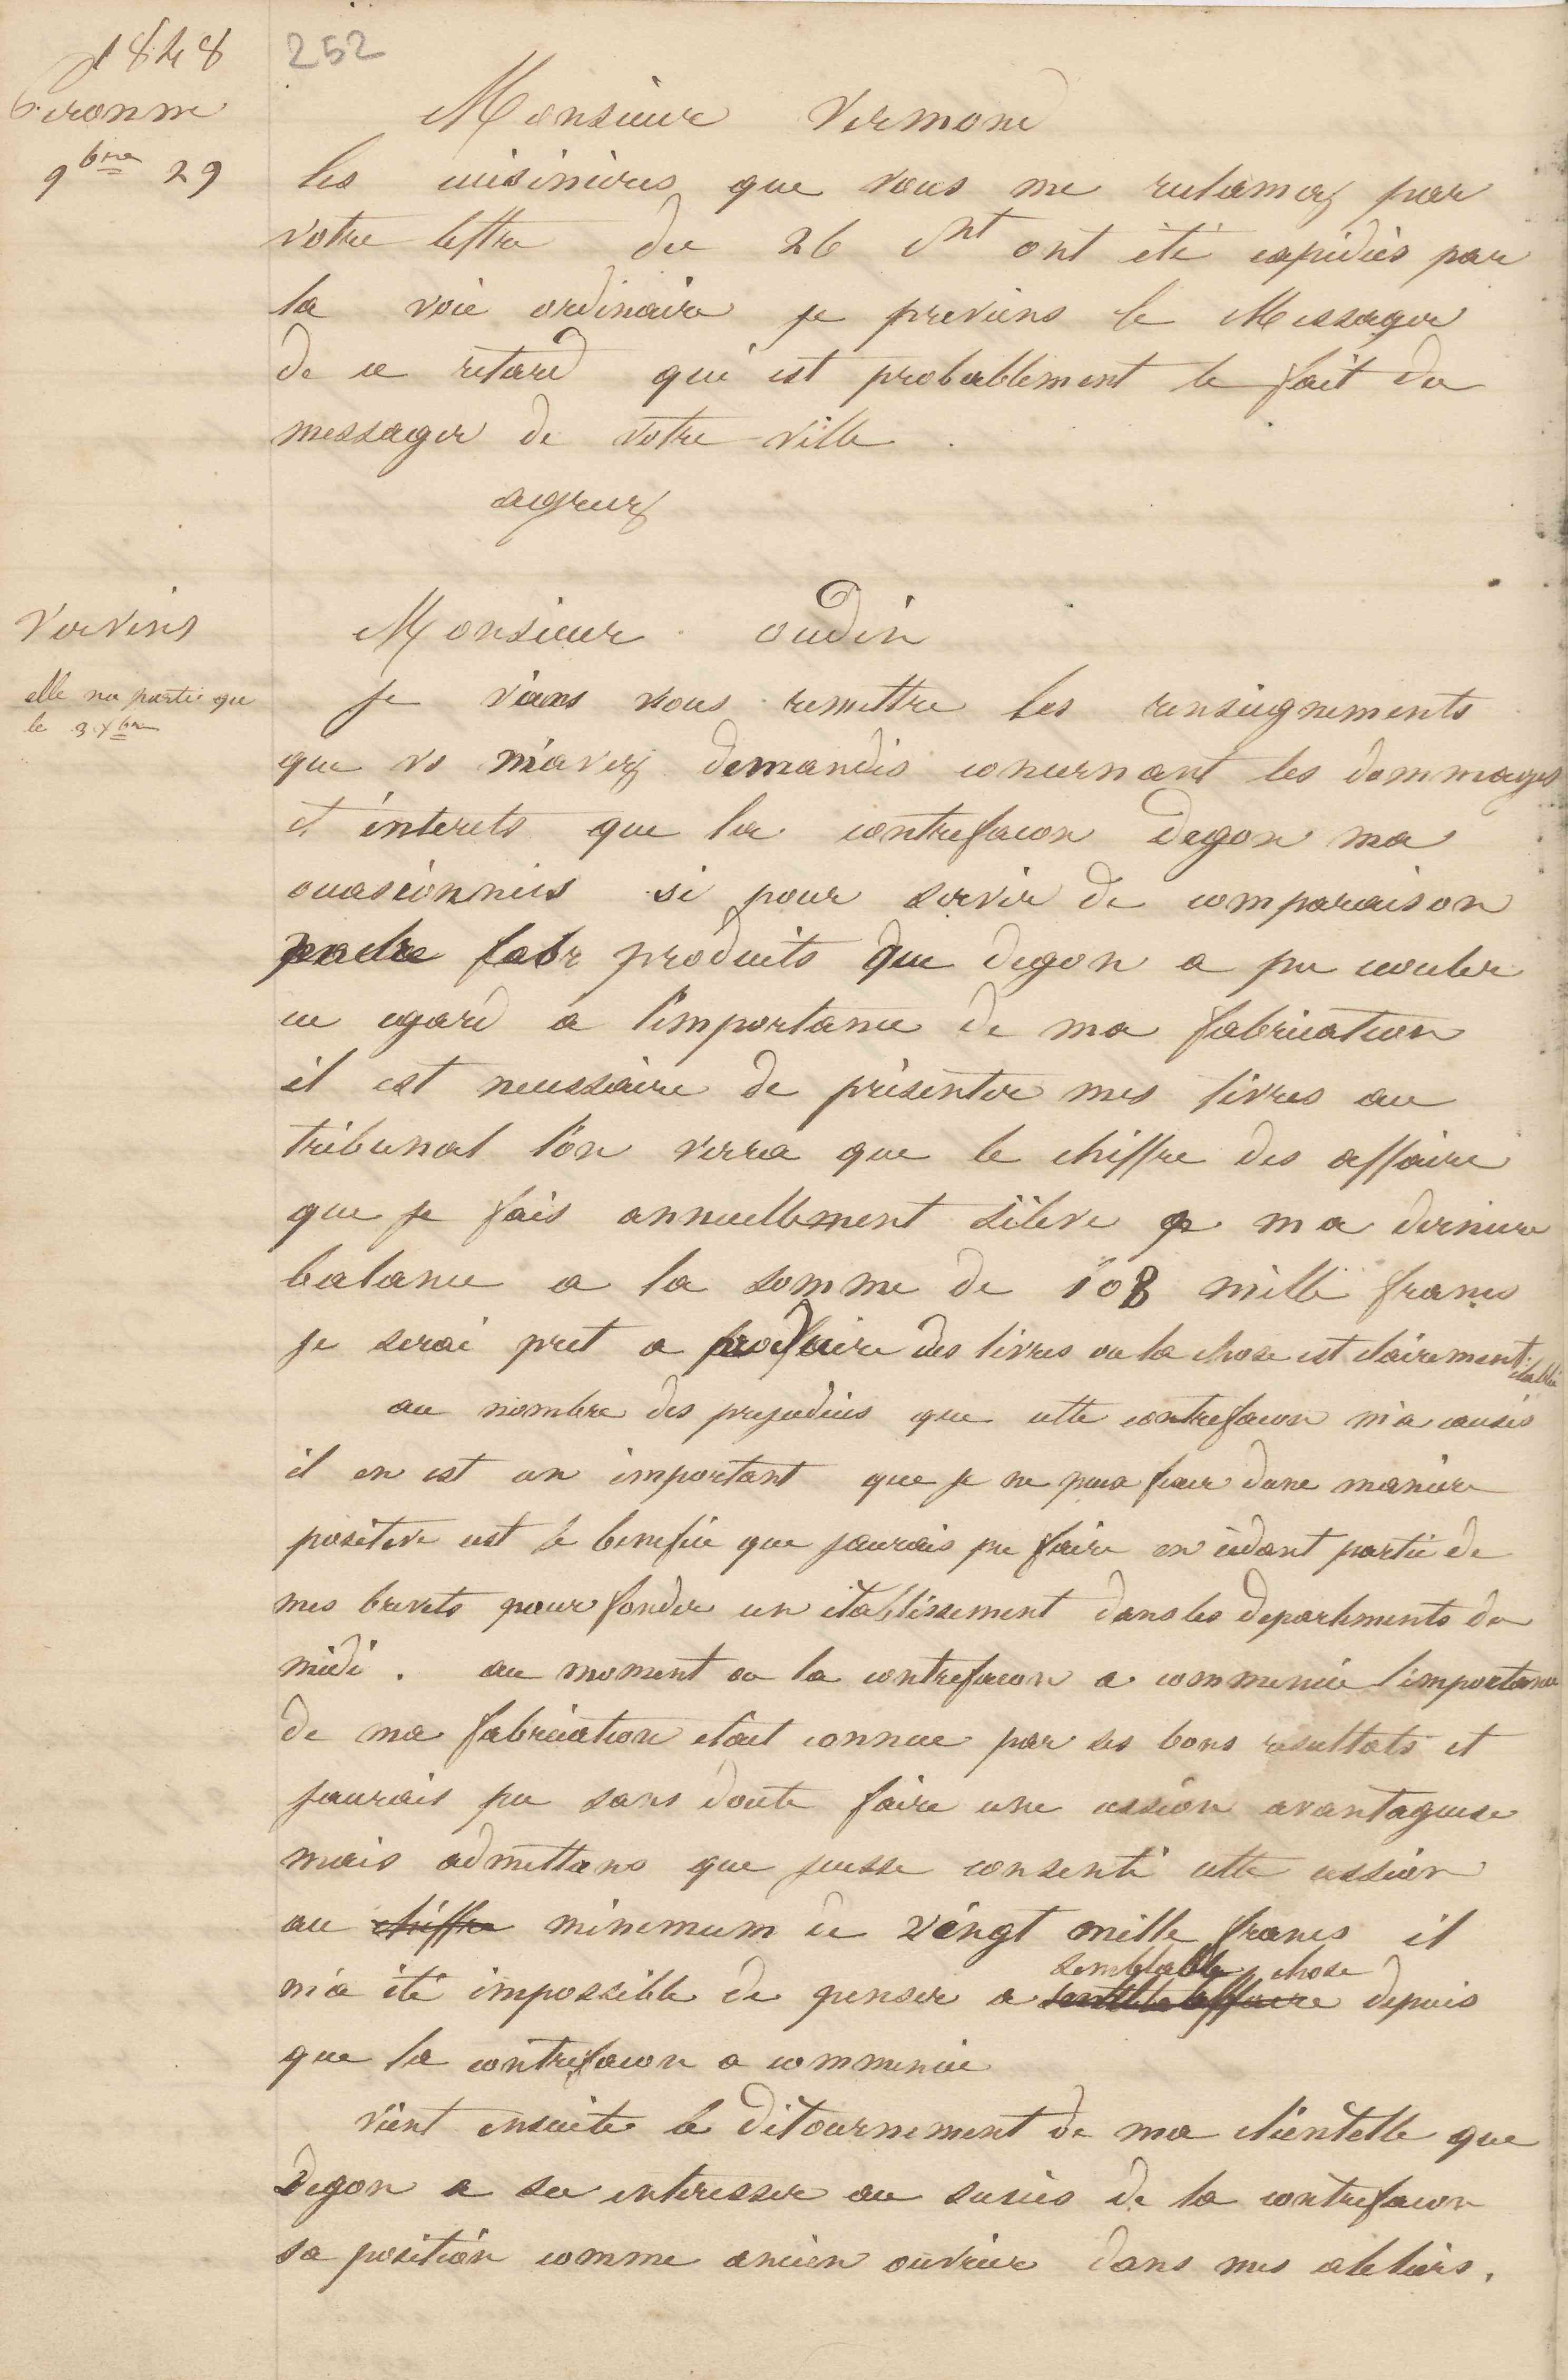 1848
252
Peronne
9bre 29
Monsieur Vermond
les cuisinieres que vous me reclamez par
votre lettre du 26 Cnt ont été expediés par
la voie ordinaire je previens le Messager
de ce retard qui est probablement le fait du
messager de votre ville.
agreez
Vervins
Monsieur oudin
elle na partie que
le 3 Xbre
je viens vous remettre les renseignements
que vs m'avez demandés concernant les dommages
et interets que la contrefacon degon ma
occasionnés si pour servir de comparaison
produits que degon a pu ecouler
eu egard a l'importance de ma fabrication
il est necessaire de présenter mes livres au
tribunal l'on verra que le chiffre des affaire
que je fais annuellement s'éleve a ma derniere
balance a la somme de 108 mille francs
je serai pret a produire des livres ou la chose est clairement etablie
au nombre des prejudices que cette contrefacon m'a causés
il en est un important que je ne puis fixer dune maniere
positive cest le benefice que jaurais pu faire en cédant partie de
mes brevets pour fonder un établissement dans les departements du
midi. au moment ou la contrefacon a commencée l'importance
de ma fabrication etait connue par ses bons resultats et
jaurais pu sans doute faire une cession avantageuse
mais admettans que jeusse consenti cette cession
au chiffre minimum de vingt mille francs il
semblable chose
m'a été impossible de penser a semblable affaire depuis
que la contrefacon a commencée
vient ensuite le détournement de ma clientelle que
Degon a su interesser au succés de la contrefacon
sa position comme ancien ouvrier dans mes atteliers.